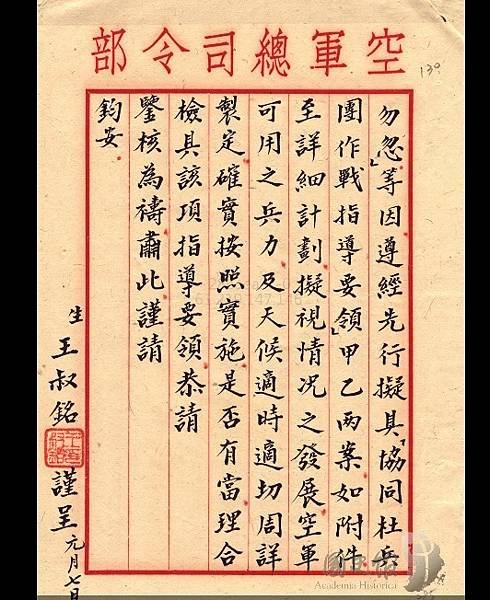 空軍總司令部
130
勿忽」等因遵經先行擬具「協同杜兵
團作戰指導要領」甲乙兩案如附件
至詳細計劃擬視情況之發展空軍
可用之兵力及天候適時適切周詳
製定確實按照實施是否有當理合
檢具該項指導要領恭請
鑒核為禱肅此謹請
鈞安
生王叔銘謹呈元月七日
國史館
Academia Historica